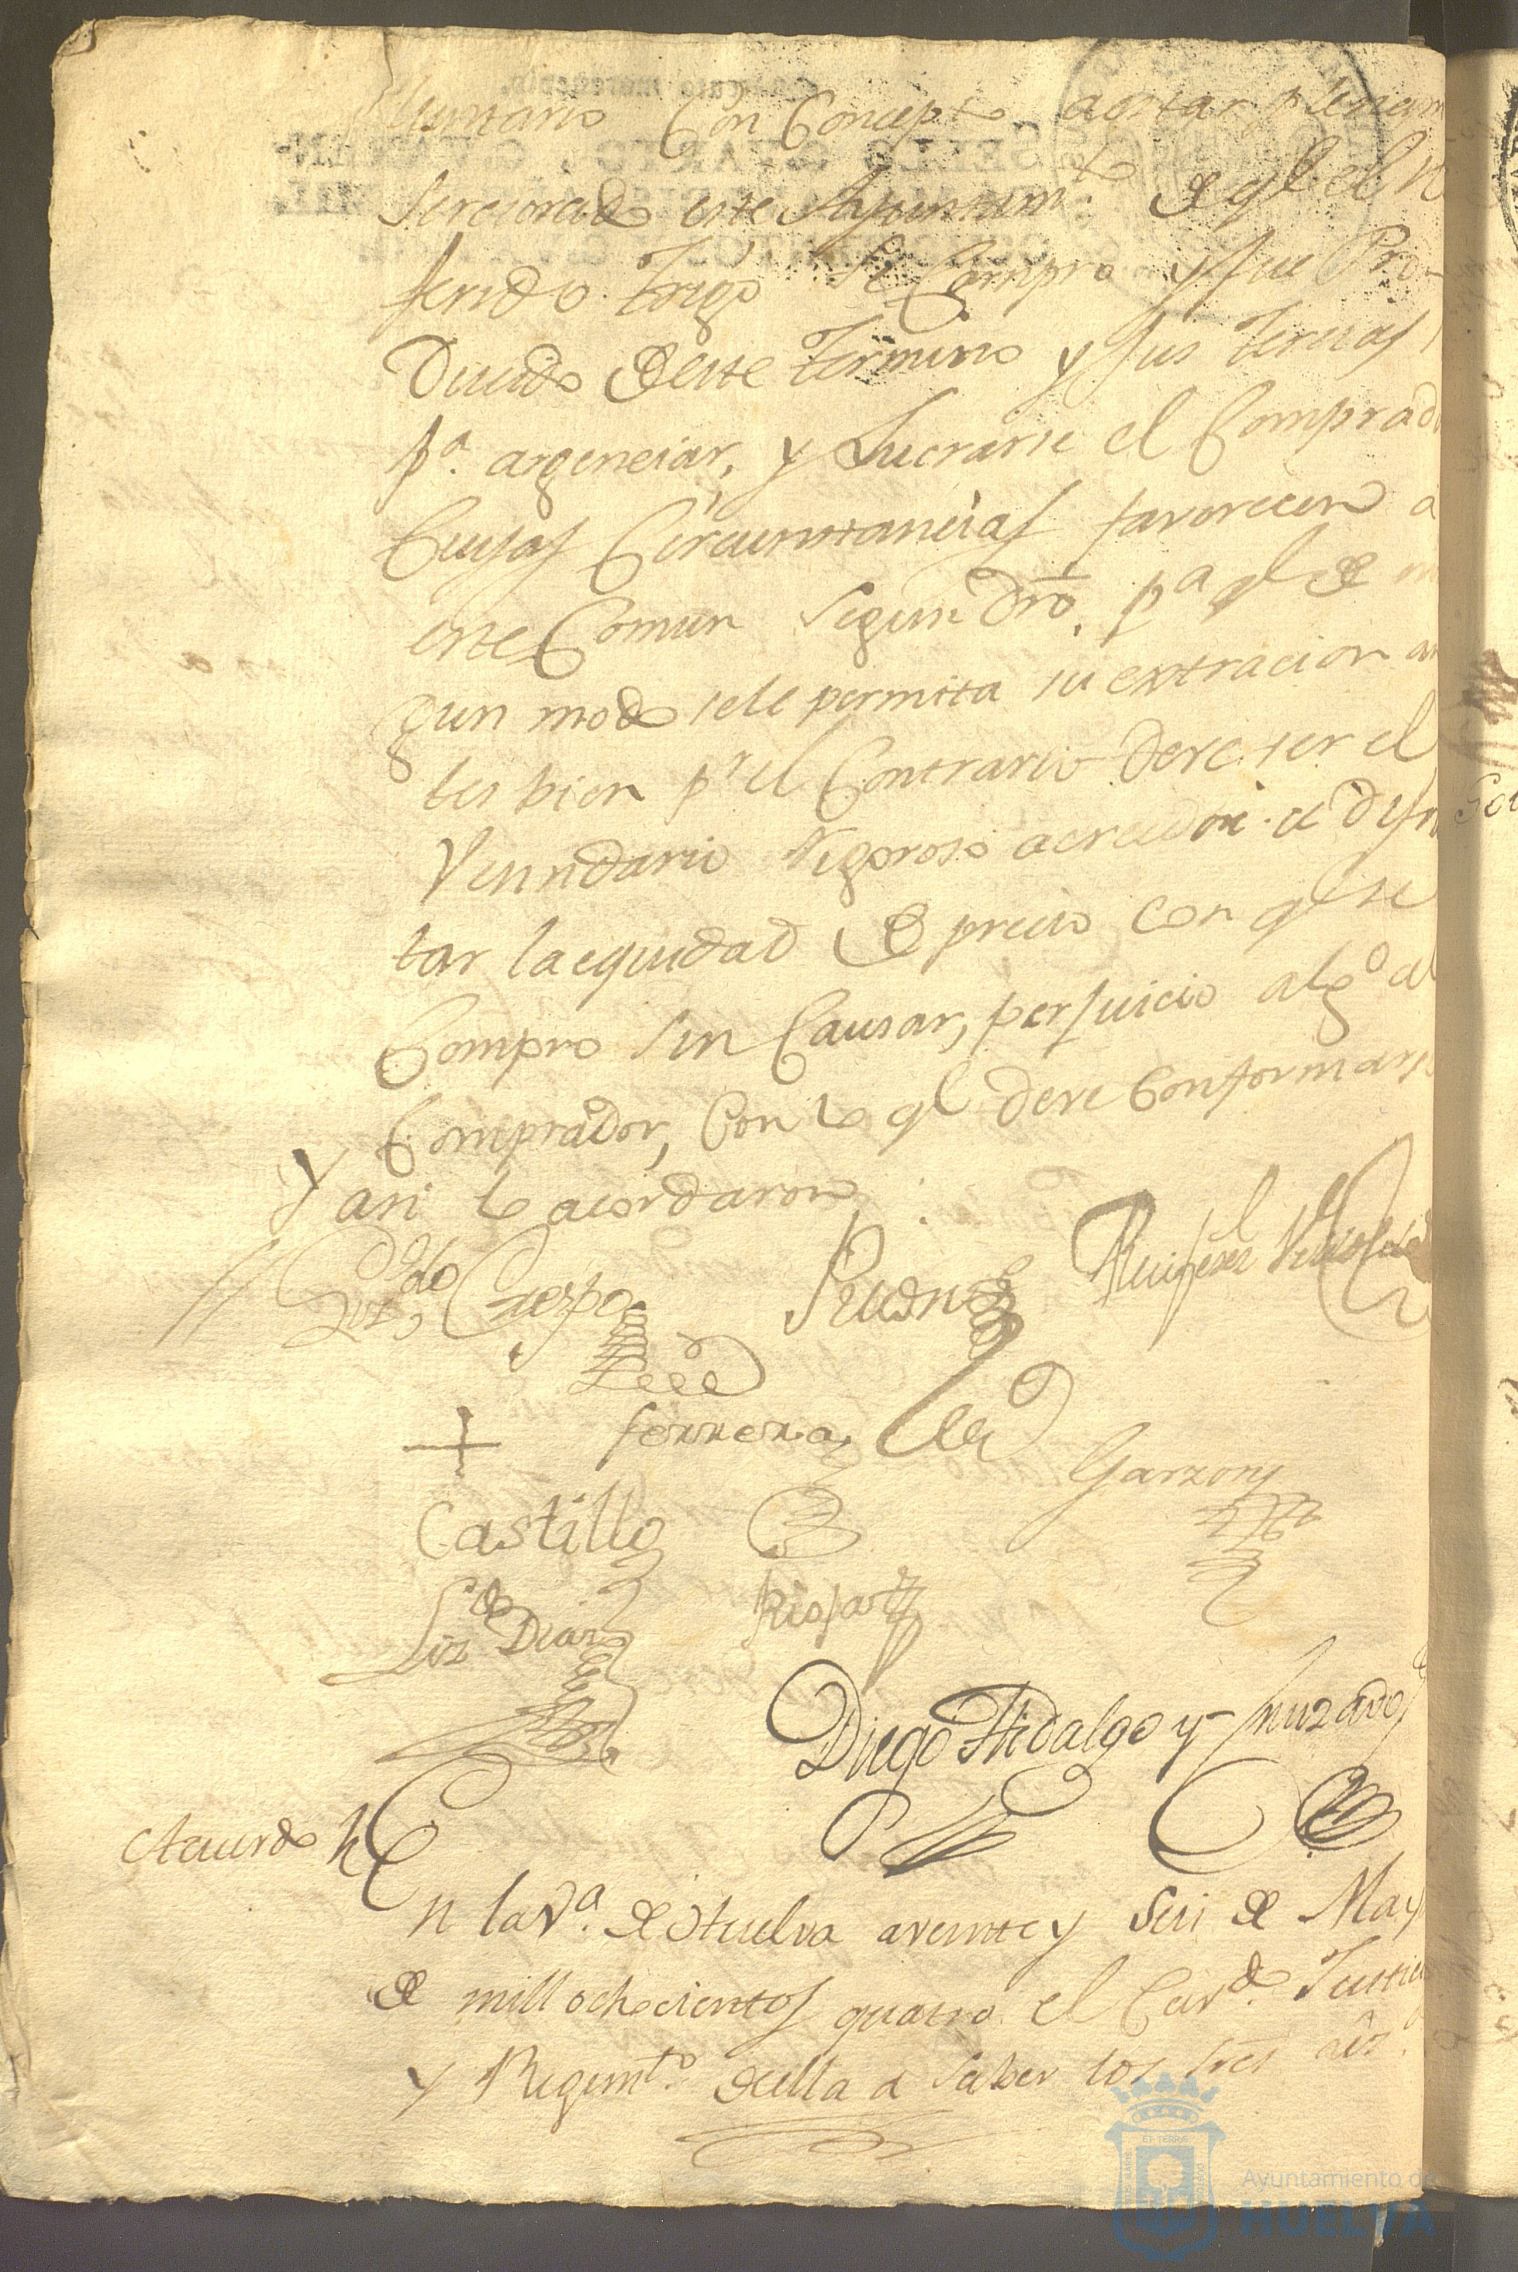 Con Concepto a estar plenam
Serciorado este Ayuntam.to de ql el Re
ferido trigo se Compro y fue Pro-
Ducido de este termino y sus tierras
p.a argenciar, y Lucrarse el Comprad
Cuyas Circunstancias favorecen a
este Comun segun Dro, pa ql de nin
gun modo sele permita su extracion an
tes bien pr el Contrario deve ser el
Vecindario Rigoroso acreedor a disfru
tar la equidad de precio con ql se
Compro sin Causar, perjuicio algo al
Comprador, Con lo ql deve Conformarse
Y asi lo acordaron
Crespo
Ferrera
Garzon
Castillo
Diego Hidalgo y
Acuerdo
En la Va. de Huelva a veinte y seis de Mayo
de mill ochocientos quatro el Cav.do Justicia
y Regim.to della a saber los sres
Ayuntamiento de
HUELVA